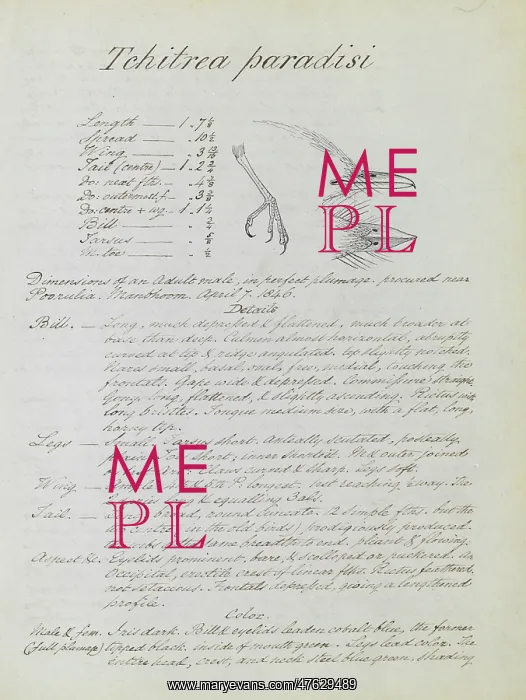 Tchitrea paradisi
Length — 1 . 7 1/8
Spread — . 10 1/2
Wing — . 3 13/16
Tail (centre) — 1 . 2 3/4
Do: next fths. — . 4 3/8
Do: outermost f — . 3 3/8
Do: centre + wg — 1 . 1 1/4
Bill — . 3/4
Tarsus — . 5/8
M. toe — . 1/2
ME
PL
Dimensions of an Adult male, in perfect plumage. procured near
Poorulia. Manbhoom. April 7. 1846.
Details
Bill. — Long, much depressed & flattened, much broader at
base than deep. Culmen almost horizontal, abruptly
curved at tip & ridge angulated. tip slightly notched.
Nares small, basal, oval, free, medial, touching the
frontals. Gape wide & depressed. Commissure straight.
Gonys long, flattened, & slightly ascending. Rictus with
long bristles. Tongue medium size, with a flat, long,
horny tip.
Legs — Small. Tarsus short. Acteally scutated, posteally
short, inner shortest. M & outer joined
Claws curved & sharp. Legs soft.
Wing — longest. just reaching / way. The
equalling 3als.
Tail. — broad, round cuneate. 12 simple fths. but the
centre (in the old birds) prodigiously produced.
same breadth to end. pliant & flowing.
Aspect &c. Eyelids prominent, bare, & scolloped or puckered. an
Occipital, erectile crest of linear fths. Rictus feathered,
not setaceous. Frontals depressed, giving a lengthened
profile.
Color.
Male & fem. Iris dark. Bill & eyelids leaden cobalt blue, the former
(full plumage) tipped black. inside of mouth green. Legs lead color. The
entire head, crest, and neck steel blue green, shading
ME
PL
www.maryevans.com/47629489